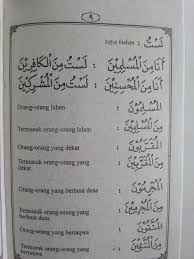 ٩
لَسْتُ : saya bukan
أَنَا مِنَ الْمُسْلِمِيْنَ : لَسْتُ مِنَ الْكَافِرِيْنَ
أَنَا مِنَ الْمُحْسِنِيْنَ : لَسْتُ مِنَ الْمُشْرِكِيْنَ
الْمُسْلِمُوْنَ : Orang-orang Islam
مِنَ الْمُسْلِمِيْنَ : Termasuk orang-orang Islam
الْمُقَرَّبُوْنَ : Orang-orang yang dekat
مِنَ الْمُقَرَّبِيْنَ : Termasuk orang-orang yang dekat
الْمُجْرِمُوْنَ : Orang-orang yang berbuat dosa
مِنَ الْمُجْرِمِيْنَ : Termasuk orang-orang yang berbuat dosa
الْمُتَّقُوْنَ : Orang-orang yang bertaqwa
مِنَ الْمُتَّقِيْنَ : Termasuk orang-orang yang bertaqwa